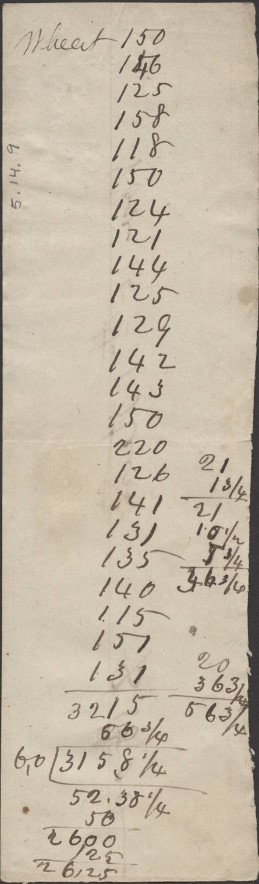 Wheat 150
146
125
158
118
150
124
121
144
125
129
142
143
150
220
126
141
131
135
140
115
151
131
3215
56 3/4
6,0 3158 1/4
52.38 1/4
50
2600
25
26,25
21
1 3/4
21
10 1/2
5 3/4
36 3/4
20
36 3/4
56 3/4
5.14.9